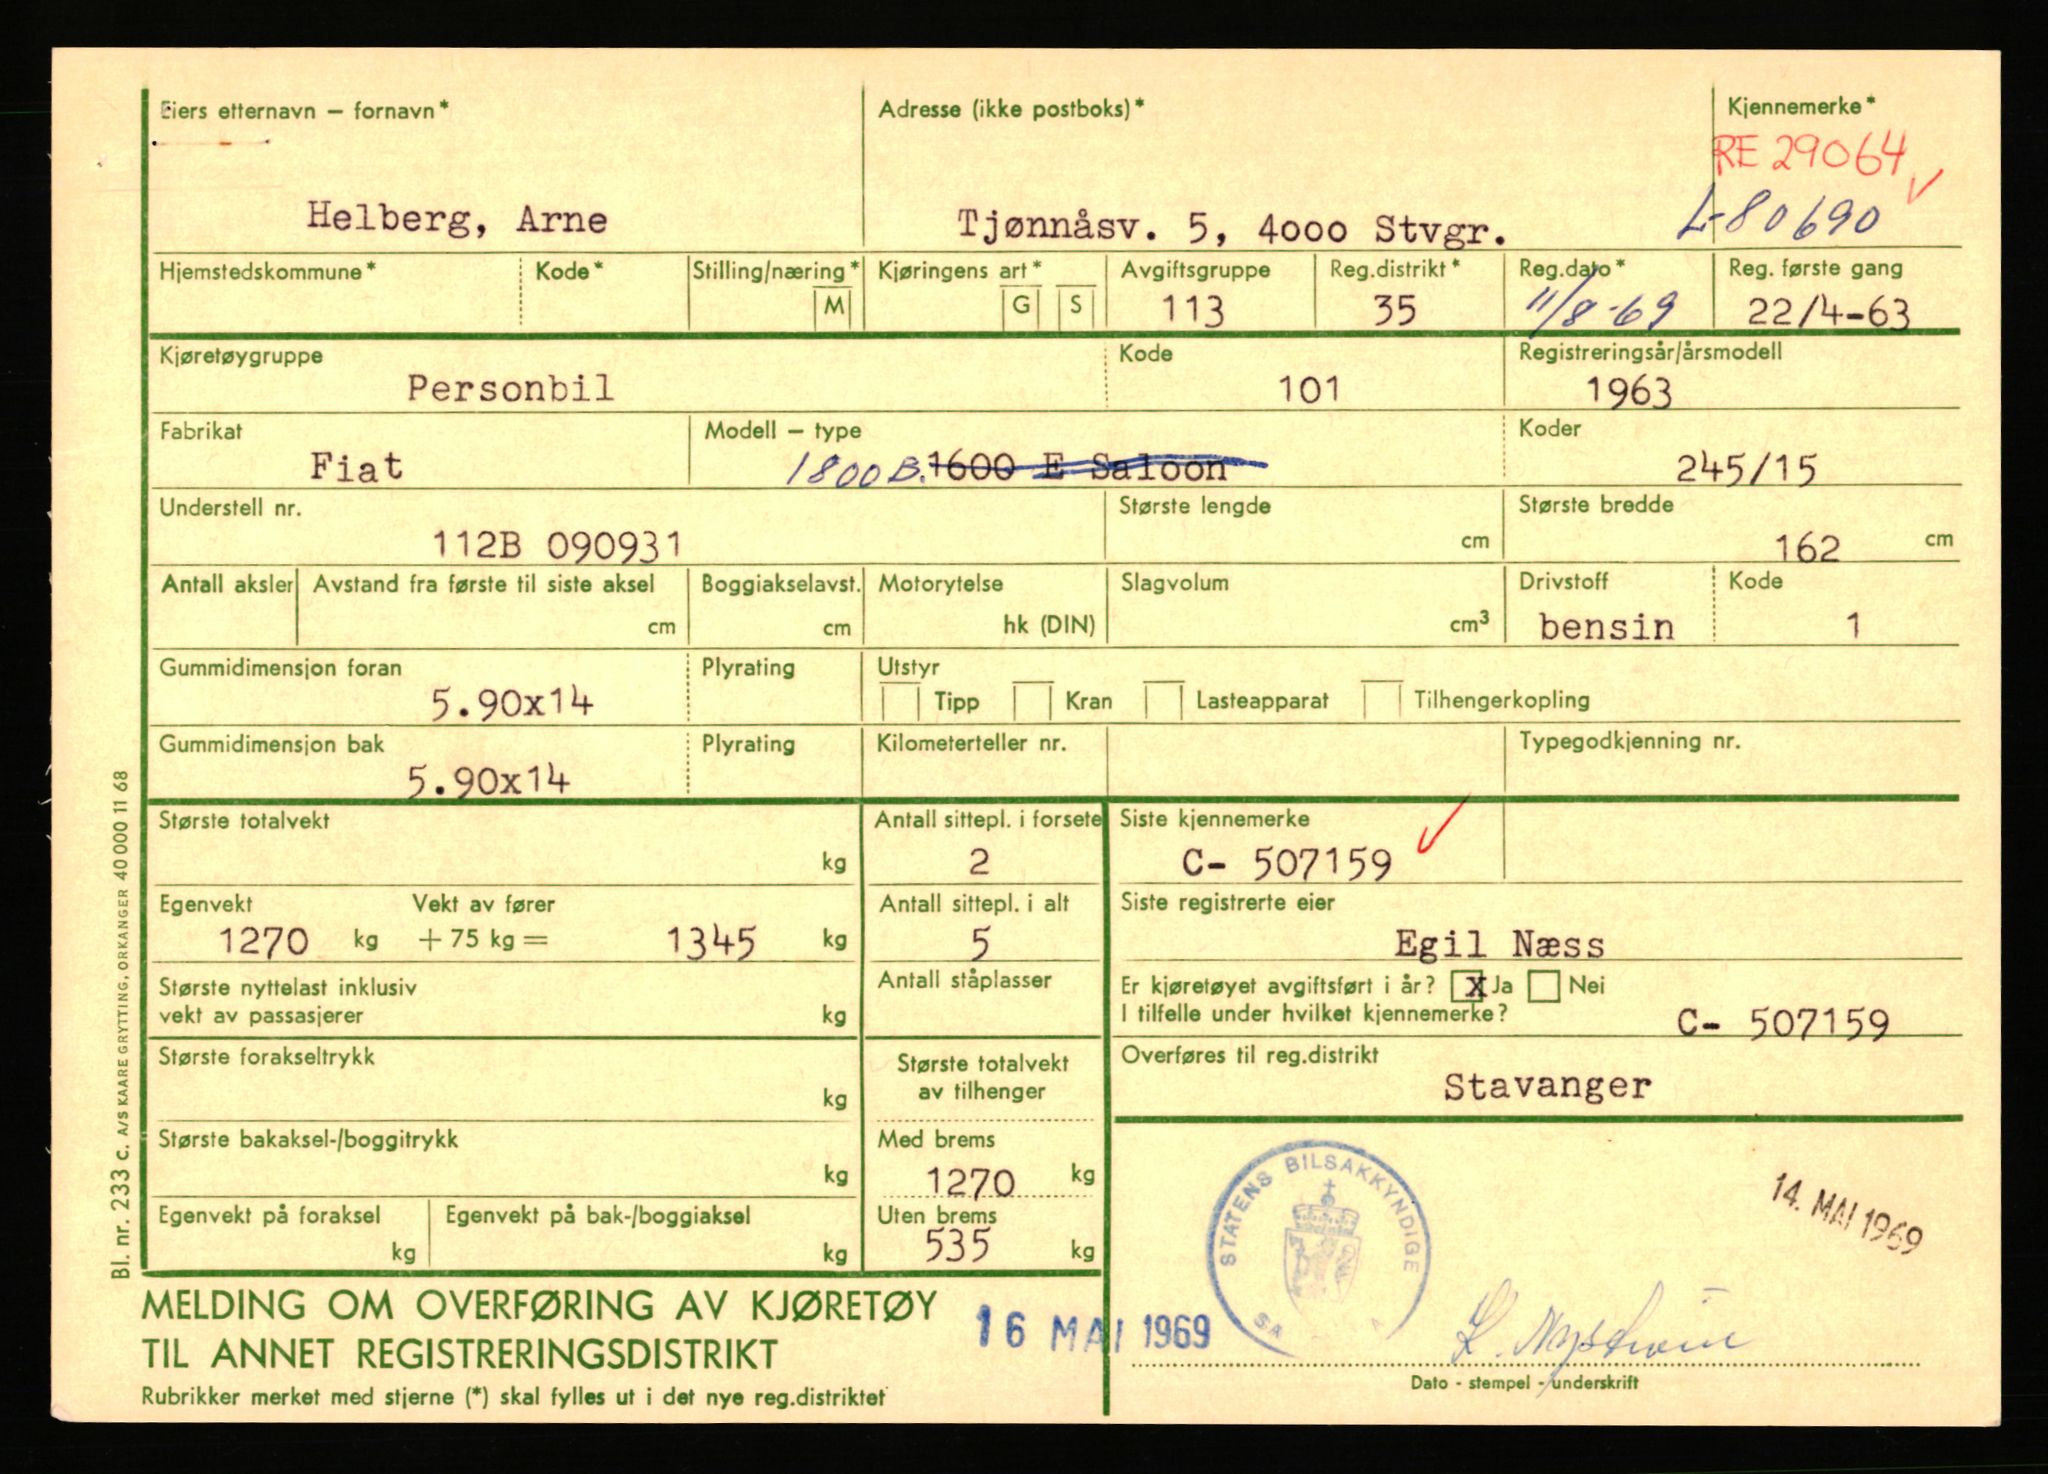 Eiers etternavn – fornavn*
Helberg, Arne
Adresse (ikke postboks)*
Tjønnåsv. 5, 4000 Stvgr.
Kjennemerke*
RE 29064
L-80690
Hjemstedskommune*
Kode*
Stilling/næring*
M
Kjøringens art*
G S
Avgiftsgruppe
113
Reg.distrikt*
35
Reg.dato*
11/8-69
Reg. første gang
22/4-63
Kjøretøygruppe
Personbil
Kode
101
Registreringsår/årsmodell
1963
Fabrikat
Fiat
Modell – type
1800 B. 1600 E Saloon
Koder
245/15
Understell nr.
112B 090931
Største lengde
cm
Største bredde
162 cm
Antall aksler
Avstand fra første til siste aksel
cm
Boggiakselavst.
cm
Motorytelse
hk (DIN)
Slagvolum
cm³
Drivstoff
bensin
Kode
1
Gummidimensjon foran
5.90x14
Plyrating
Utstyr
Tipp Kran Lasteapparat Tilhengerkopling
Gummidimensjon bak
5.90x14
Plyrating
Kilometerteller nr.
Typegodkjenning nr.
Største totalvekt
kg
Antall sittepl. i forsete
2
Siste kjennemerke
C- 507159
Egenvekt
1270 kg
Vekt av fører
+ 75 kg = 1345 kg
Antall sittepl. i alt
5
Siste registrerte eier
Egil Næss
Største nyttelast inklusiv
vekt av passasjerer
kg
Antall ståplasser
Er kjøretøyet avgiftsført i år? X Ja Nei
I tilfelle under hvilket kjennemerke?
C- 507159
Største forakseltrykk
kg
Største totalvekt
av tilhenger
Overføres til reg.distrikt
Stavanger
Største bakaksel-/boggitrykk
kg
Med brems
1270 kg
Egenvekt på foraksel
kg
Egenvekt på bak-/boggiaksel
kg
Uten brems
535 kg
STATENS BILSAKKYNDIGE
14. MAI 1969
MELDING OM OVERFØRING AV KJØRETØY
TIL ANNET REGISTRERINGSDISTRIKT
Rubrikker merket med stjerne (*) skal fylles ut i det nye reg.distriktet
16 MAI 1969
Dato - stempel - underskrift
Bl. nr. 233 c. A/S KAARE GRYTTING, ORKANGER 40 000 11 68